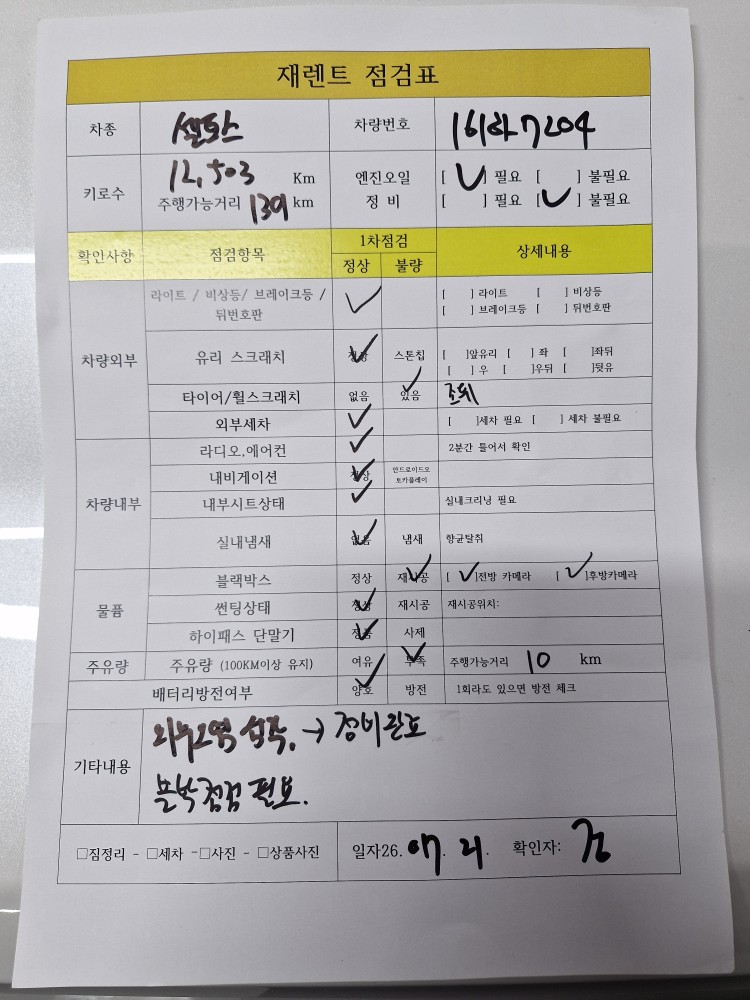 재렌트 점검표
차종 셀토스 차량번호 161하7204
키로수 12,503 Km 엔진오일 [ ✓ ] 필요 [ ] 불필요
주행가능거리 139 km 정 비 [ ] 필요 [ ✓ ] 불필요
확인사항 점검항목 1차점검 상세내용
정상 불량
차량외부 라이트 / 비상등/ 브레이크등 / ✓ [ ] 라이트 [ ] 비상등
뒤번호판 [ ] 브레이크등 [ ] 뒤번호판
유리 스크래치 정상 ✓ 스톤칩 [ ]앞유리 [ ] 좌 [ ]좌뒤
[ ] 우 [ ]우뒤 [ ]뒷유
타이어/휠스크래치 없음 있음 ✓
외부세차 ✓ [ ]세차 필요 [ ] 세차 불필요
차량내부 라디오,에어컨 ✓ 2분간 틀어서 확인
내비게이션 정상 ✓ 안드로이드오
토카플레이
내부시트상태 ✓ 실내크리닝 필요
실내냄새 없음 ✓ 냄새 향균탈취
물품 블랙박스 정상 재시공 ✓ [ ✓ ]전방 카메라 [ ✓ ]후방카메라
썬팅상태 정상 ✓ 재시공 재시공위치:
하이패스 단말기 정품 ✓ 사제
주유량 주유량 (100KM이상 유지) 여유 부족 ✓ 주행가능거리 10 km
배터리방전여부 양호 ✓ 방전 1회라도 있으면 방전 체크
기타내용 외부오염 심각. → 정비완료
블박점검 필요.
□짐정리 - □세차 -□사진 - □상품사진 일자26. 07. 21. 확인자: 김